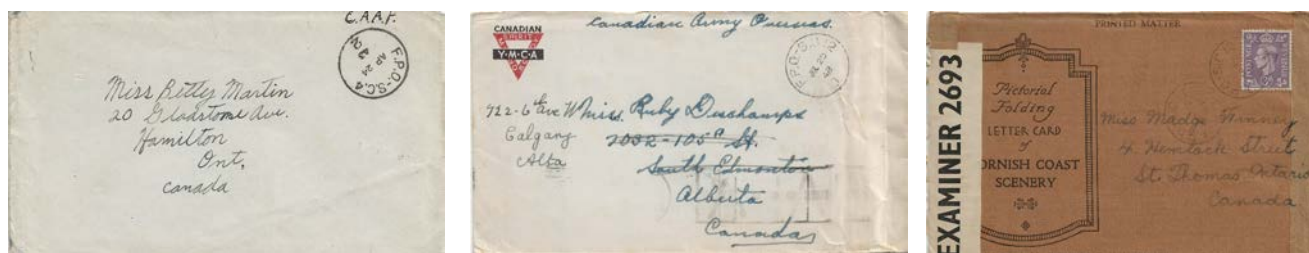 C.A.A.F.
F.P.O.-S.C.4
AP 24
Miss Betty Martin
20 Gladstone Ave.
Hamilton
Ont,
Canada
CANADIAN
Y·M·C·A
Canadian Army Overseas.
722-6th Ave W
Calgary
Alta
Miss. Ruby Duchamps
7032-105A St.
South Edmonton
Alberta
Canada
EXAMINER 2693
PRINTED MATTER
Pictorial
Folding
LETTER CARD
of
ORNISH COAST
SCENERY
Miss Madge Winney
St. Thomas Ontario
Canada